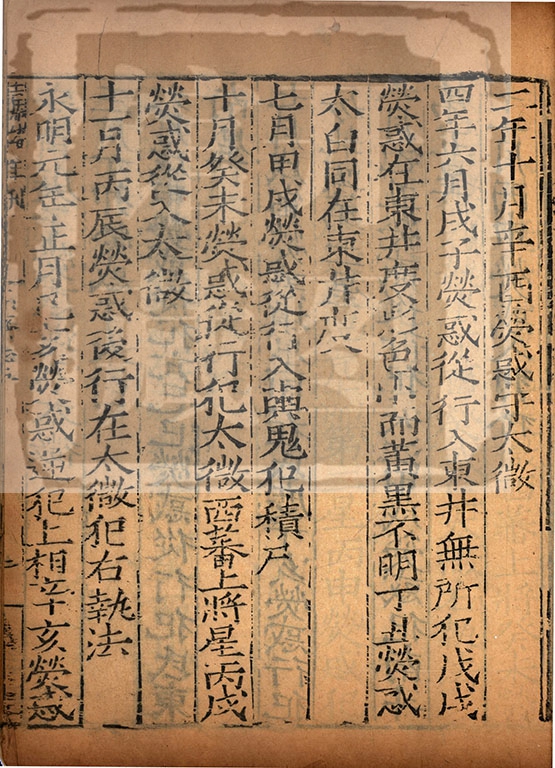 二年十月辛酉熒惑守太微
四年六月戊子熒惑從行入東井無所犯戊戌
熒惑在東井度形色小而黃黑不明丁丑熒惑
太白同在東井度
七月甲戌熒惑從行入輿鬼犯積尸
十月癸未熒惑從行犯太微西蕃上將星丙戌
熒惑從入太微
十一月丙辰熒惑從行在太微犯右執法
永明元年正月己亥熒惑逆犯上相辛亥熒惑